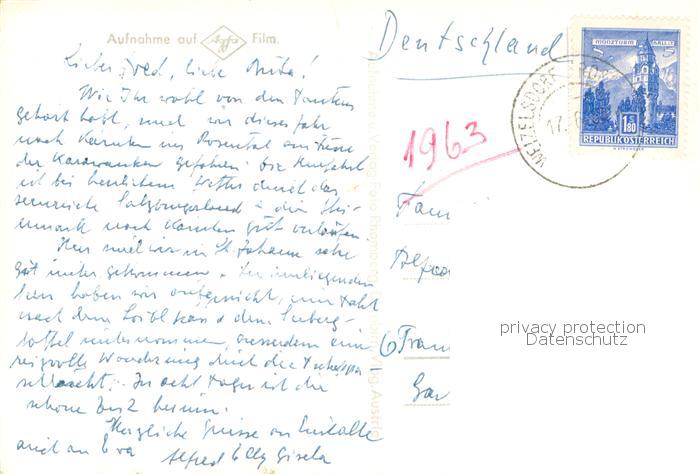 Aufnahme auf Agfa Film.
Deutschland
MÜNZTURM HALL I.T.
1.80
REPUBLIK ÖSTERREICH
WEIZELSDORF
17.
1963
Lieber Fred, liebe Anita!
Wie Ihr wohl von den Tanten
gehört habt, sind wir dieses Jahr
nach Kärnten ins Rosental am Fusse
der Karawanken gefahren. Die Anfahrt
ist bei herrlichem Wetter durch das
Salzburgerland u. die Stei-
ermark nach Kärnten gut verlaufen.
Hier sind wir in St. Johann sehr
gut unter gekommen. Die umliegenden
Seen haben wir aufgesucht, eine Fahrt
nach dem Loiblpass u. dem Seeberg-
sattel unternommen, ausserdem eine
reizvolle Wanderung durch die Tscheppa-
schlucht. In acht Tagen ist die
schöne Zeit herum.
Herzliche Grüsse an Euch alle
auch an Eva Alfred Elly Gisela
Fam
Alfre
6 Fran
Gar
privacy protection
Datenschutz